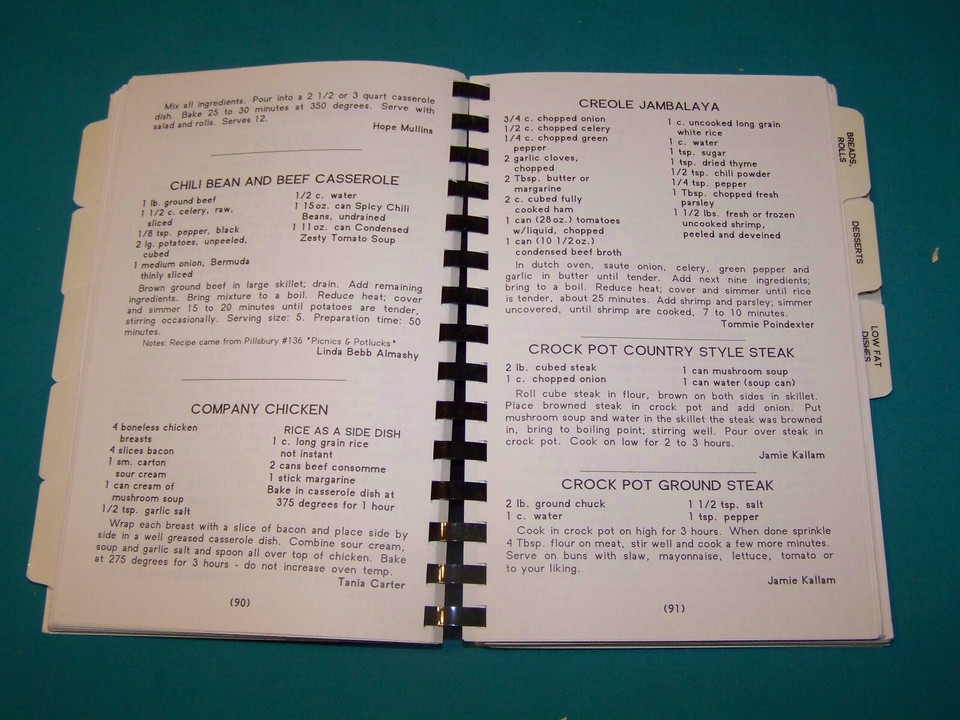 Mix all ingredients. Pour into a 2 1/2 or 3 quart casserole
dish. Bake 25 to 30 minutes at 350 degrees. Serve with
salad and rolls. Serves 12.
Hope Mullins
CHILI BEAN AND BEEF CASSEROLE
1 lb. ground beef
1 1/2 c. celery, raw,
sliced
1/8 tsp. pepper, black
2 lg. potatoes, unpeeled,
cubed
1 medium onion, Bermuda
thinly sliced
1/2 c. water
1 15 oz. can Spicy Chili
Beans, undrained
1 11 oz. can Condensed
Zesty Tomato Soup
Brown ground beef in large skillet; drain. Add remaining
ingredients. Bring mixture to a boil. Reduce heat; cover
and simmer 15 to 20 minutes until potatoes are tender,
stirring occasionally. Serving size: 5. Preparation time: 50
minutes.
Notes: Recipe came from Pillsbury #136 "Picnics & Potlucks"
Linda Bebb Almashy
COMPANY CHICKEN
4 boneless chicken
breasts
4 slices bacon
1 sm. carton
sour cream
1 can cream of
mushroom soup
1/2 tsp. garlic salt
RICE AS A SIDE DISH
1 c. long grain rice
not instant
2 cans beef consomme
1 stick margarine
Bake in casserole dish at
375 degrees for 1 hour
Wrap each breast with a slice of bacon and place side by
side in a well greased casserole dish. Combine sour cream,
soup and garlic salt and spoon all over top of chicken. Bake
at 275 degrees for 3 hours - do not increase oven temp.
Tania Carter
(90)
CREOLE JAMBALAYA
3/4 c. chopped onion
1/2 c. chopped celery
1/4 c. chopped green
pepper
2 garlic cloves,
chopped
2 Tbsp. butter or
margarine
2 c. cubed fully
cooked ham
1 can (28 oz.) tomatoes
w/liquid, chopped
1 can (10 1/2 oz.)
condensed beef broth
1 c. uncooked long grain
white rice
1 c. water
1 tsp. sugar
1 tsp. dried thyme
1/2 tsp. chili powder
1/4 tsp. pepper
1 Tbsp chopped fresh
parsley
1 1/2 lbs. fresh or frozen
uncooked shrimp,
peeled and deveined
In dutch oven, saute onion, celery, green pepper and
garlic in butter until tender. Add next nine ingredients;
bring to a boil. Reduce heat; cover and simmer until rice
is tender, about 25 minutes. Add shrimp and parsley; simmer
uncovered, until shrimp are cooked, 7 to 10 minutes.
Tommie Poindexter
CROCK POT COUNTRY STYLE STEAK
2 lb. cubed steak
1 c. chopped onion
1 can mushroom soup
1 can water (soup can)
Roll cube steak in flour, brown on both sides in skillet.
Place browned steak in crock pot and add onion. Put
mushroom soup and water in the skillet the steak was browned
in, bring to boiling point; stirring well. Pour over steak in
crock pot. Cook on low for 2 to 3 hours.
Jamie Kallam
CROCK POT GROUND STEAK
2 lb. ground chuck
1 c. water
1 1/2 tsp. salt
1 tsp. pepper
Cook in crock pot on high for 3 hours. When done sprinkle
4 Tbsp. flour on meat, stir well and cook a few more minutes.
Serve on buns with slaw, mayonnaise, lettuce, tomato or
to your liking.
Jamie Kallam
(91)
BREADS,
ROLLS
DESSERTS
LOW FAT
DISHES